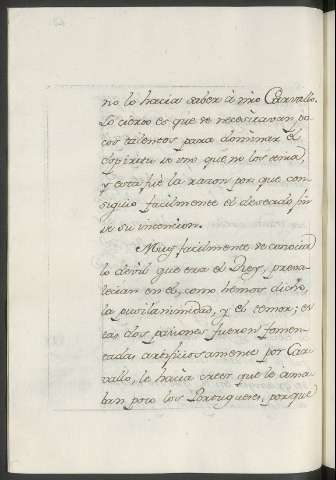 no lo hacia saber à mro Carvallo.
Lo cierto es que se necesitavan po
cos talentos para dominar el
espiritu de uno que no los tenia,
y esta fuè la razon por que con
siguio facilmente el deseado fin
de su intencion.
Muy facilmente se conocia
lo devil que era el Rey, preva
lecian en el, como hemos dicho,
la pusilanimidad, y el temor; es
tas dos pasiones fueron fomen
tadas artificiosamente por Car
vallo, le hacia creer que lo ama
ban poco los Portugueses, porque